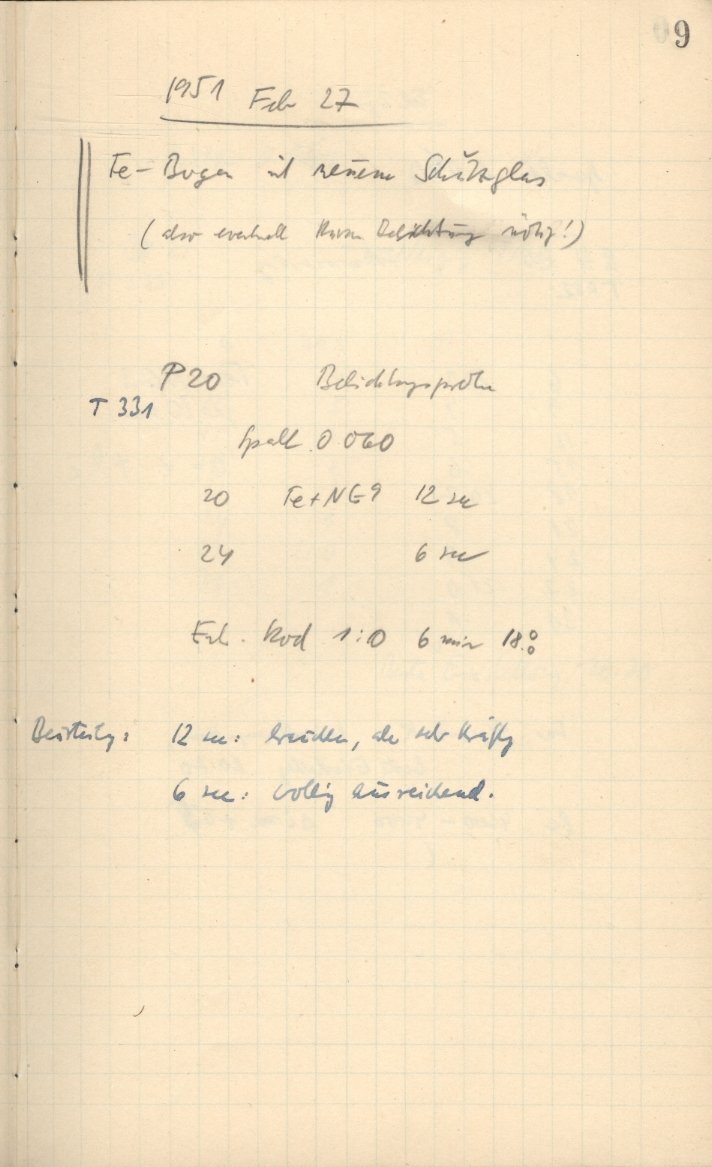 9
1951 Feb 27
Fe-Bogen mit neuem Schutzglas
(also eventuell kürzere Belichtung nötig!)
P 20 Belichtungsprobe
T 331
Spalt 0 060
20 Fe+NG9 12 sec
24 6 sec
Entw. Rod 1:10 6 min 18°
Beurteilung: 12 sec: brauchbar, aber sehr kräftig
6 sec: völlig ausreichend.